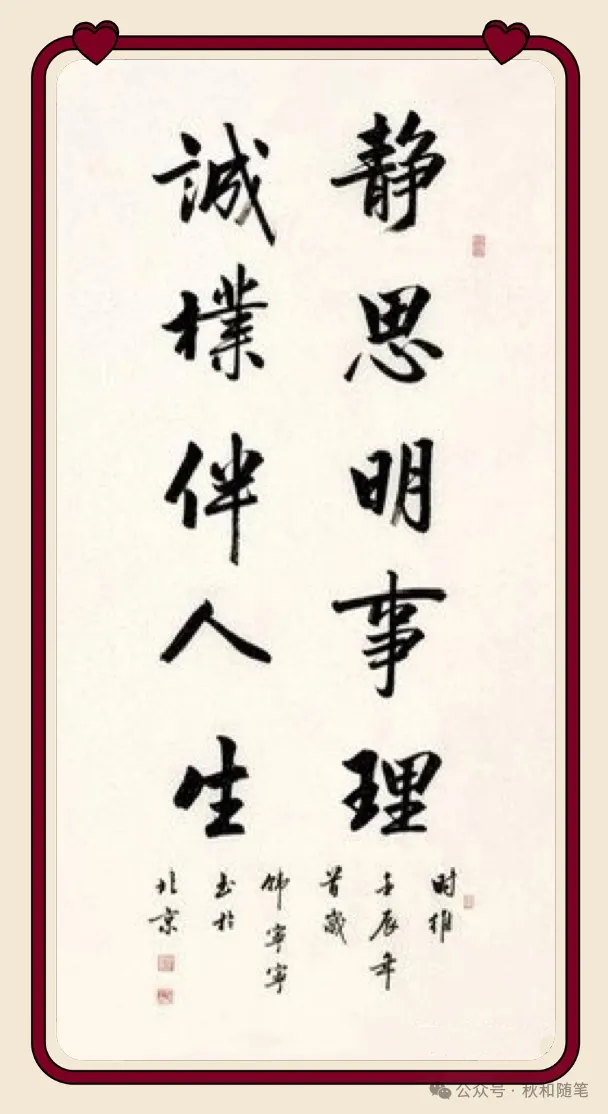 靜思明事理
誠樸伴人生
时维
壬辰年
首歲
帅寧寧
书於
北京
公众号·秋和随笔